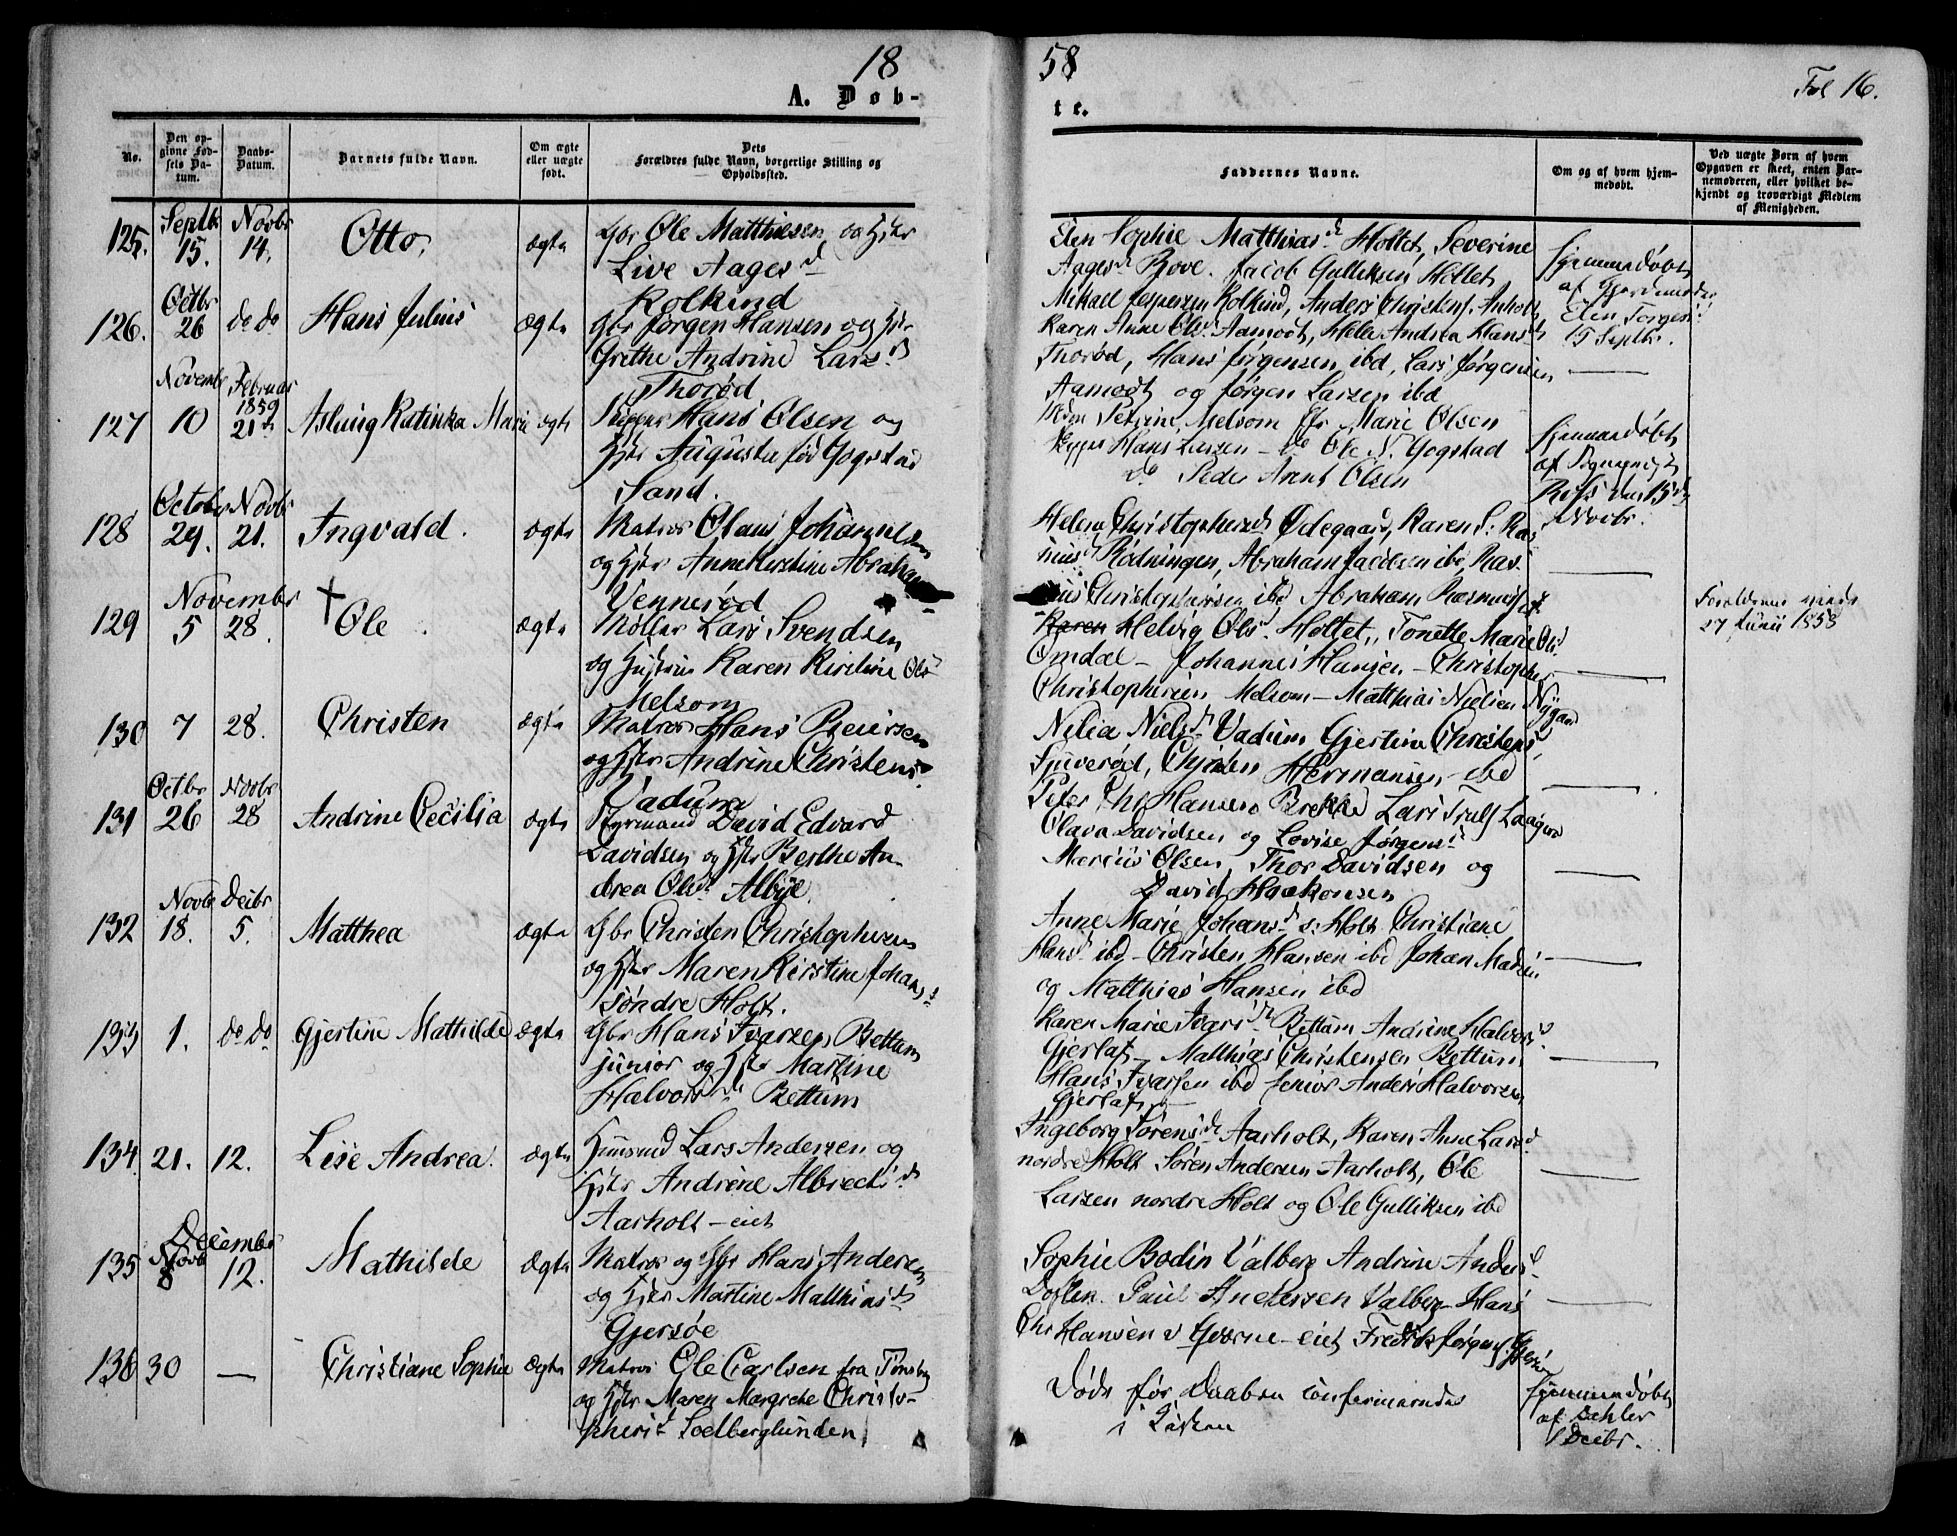 18
58
Fol 16.
A. Døb-
te.
No.
Den op-
givne Fød-
sels Da-
tum.
Daabs-
Datum.
Barnets fulde Navn.
Om ægte
eller uægte
født.
Dets
Forældres fulde Navn, borgerlige Stilling og
Opholdssted.
Faddernes Navne.
Om og af hvem hjem-
medøbt.
Ved uægte Børn af hvem
Opgaven er skeet, enten Bar-
nemoderen, eller hvilket be-
kjendt og troværdigt Medlem
af Menigheden.
125. Septbr 15. Novbr 14. Otto, ægte
Gbr Ole Matthiesen og Hstr
Live Aagesd
Rolkind
Elen Sophie Matthiasd Holtet, Severine
Aagesd Bove. Jacob Gulliksen Holtet
Mikael Jespersen Rolkind, Anders Christens. Anholt
Hjemmedøbt
af Gjordemoder
Elen Torgersd
15 Septbr.
126. Octbr 26 do do Hans Julius ægte
Gbr Jørgen Hansen og Hstr
Grethe Andrine Larsd
Thorød
Karen Anne Olsd Aamodt, Helle Andrea Hansd
Thorød, Hans Jørgensen ibd, Lars Jørgensen
Aamodt og Jørgen Larsen ibd
127 November 10 Februar 1859 21de Aslaug Katinka Marie ægte
Skipper Hans Olsen og
Hstr Augusta fød Gogstad
Sand.
Petrine Melsom Marie Olsen
Skipper Hans Larsen - do Ole N. Gogstad
do Peder Arnt Olsen
Hjemmedøbt
af Sognepræst
den 15de
Novbr.
128 October 29. Novbr 21. Ingvald. ægte
Matros Olaus Johannesen
og Hstr Anne Kirstine Abraham
Vennerød
Helene Christophersd Ødegaard, Karen S. Ras-
musd Rødningen, Abraham Jacobsen ibd, Ras-
mus Christophersen ibd Abraham Rasmus
129 November 5 28. † Ole. ægte
Møller Lars Svendsen
og Hustru Karen Kirstine Olsd
Melsom
Karen Helvig Olsd. Holtet, Tonette Marie Ols
Omdal - Johannes Hansen - Christopher
Christophersen Melsom - Matthias Nielsen Nygaard
Forældrene viede
27 Junii 1858
130 7 28. Christen ægte
Matros Hans Reiersen
og Hstr Andrine Christens
Vadum
Nilia Nielsd Vadum Gjertine Christensd
Sjuverød, Christen Hermansen, ibd
Peter Chr Hansen Brekke Lars Truls Laagerø
131 Octbr 26 Novbr 28 Andrine Cecilia ægte
Styrmand David Edvard
Davidsen og Hstr Berthe An-
drea Olsd Albye.
Olava Davidsen og Lovise Jørgensd
Marius Olsen, Thor Davidsen og
David Haakonsen
132 Novbr 18. Decbr 5. Matthea ægte
Gbr Christen Christophersen
og Hstr Maren Kirstine Johans
Søndre Holt.
Anne Marie Johansd s. Holt Christiane
Hansd ibd - Christen Hansen ibd Johan Madsen
og Matthias Hansen ibd
133 1. do do Gjertine Mathilde ægte
Gbr Hans Ivarsen Bettum
junior og Hstr Martine
Halvorsd Bettum
Karen Marie Ivarsd Bettum Andrine Halvorsd
Gjerla Matthias Christensen Bettum
Hans Ivarsen ibd senior Anders Halvorsen
134. 21. 12. Lise Andrea. ægte
Huusmd Lars Andersen og
Hstr Andrine Albrectsd
Aarholt-eiet
Ingeborg Sørensd Aarholt, Karen Anne Larsd
nordre Holt Søren Andersen Aarholt, Ole
Larsen nordre Holt og Ole Gulliksen ibd
135 Novbr 8 December 12. Mathilde Ægte
Matros og Gbr Hans Andersen
og Hstr Martine Matthiasd
Gjersøe
Sophie Bodin Valberg Andrine Andersd
Paul Andersen Valberg - Hans
Chr Hansen Gverne-eiet Fredrik Jørgens. Gjersøe
136 30 — Christiane Sophie Ægte
Matros Ole Carlsen fra Tønsberg
og Hstr Maren Margrethe Christo-
phersd Soelberglunden
Døde før Daaben confirmerades
i Kirken
Hjemmedøbt
af Dahler
1 Decbr.